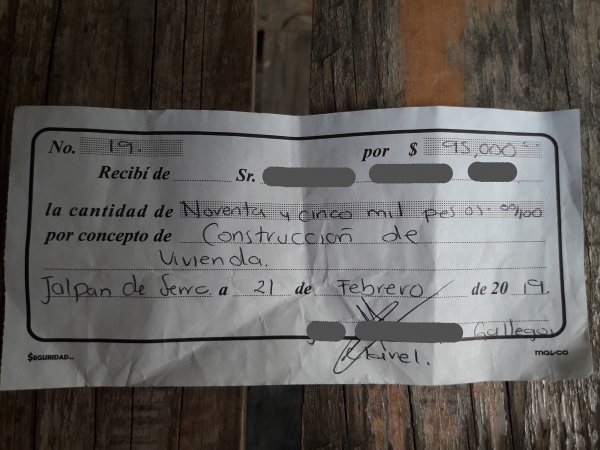 No. 19. por $ 95,000.00
Recibí de Sr.
la cantidad de Noventa y cinco mil pesos. 00/100
por concepto de Construcción de
Vivienda.
Jalpan de Serra a 21 de Febrero de 2019.
Gallegos
SEGURIDAD
masco